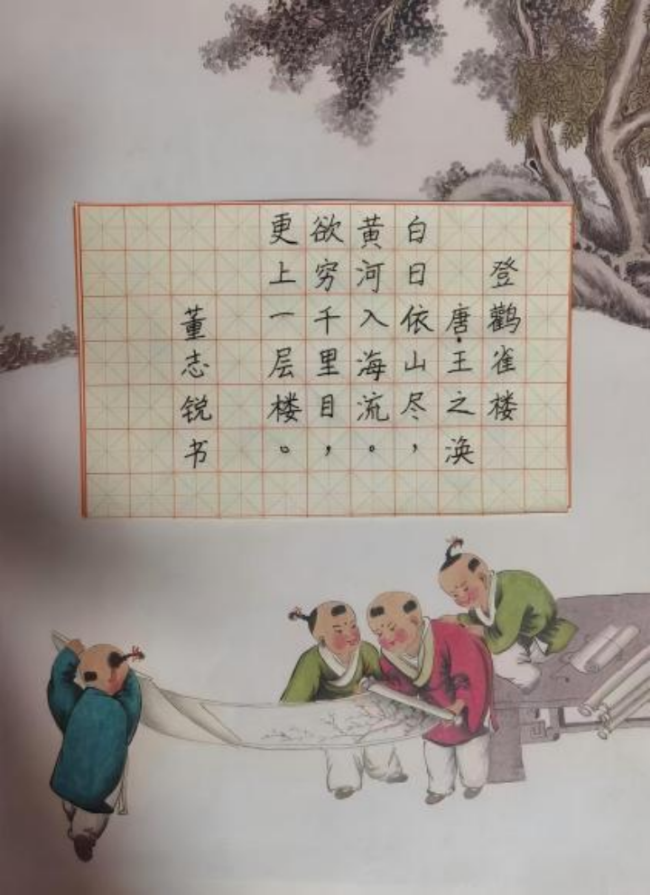 登鹳雀楼
唐·王之涣
白日依山尽，
黄河入海流。
欲穷千里目，
更上一层楼。
董志锐书